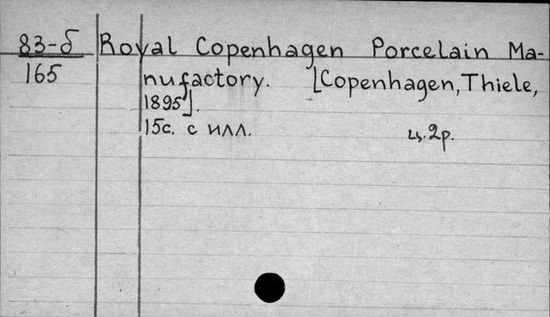 83-б Royal Copenhagen Porcelain Ma-
165 nufactory. [Copenhagen, Thiele,
1895].
15с. с илл. ц. 2р.